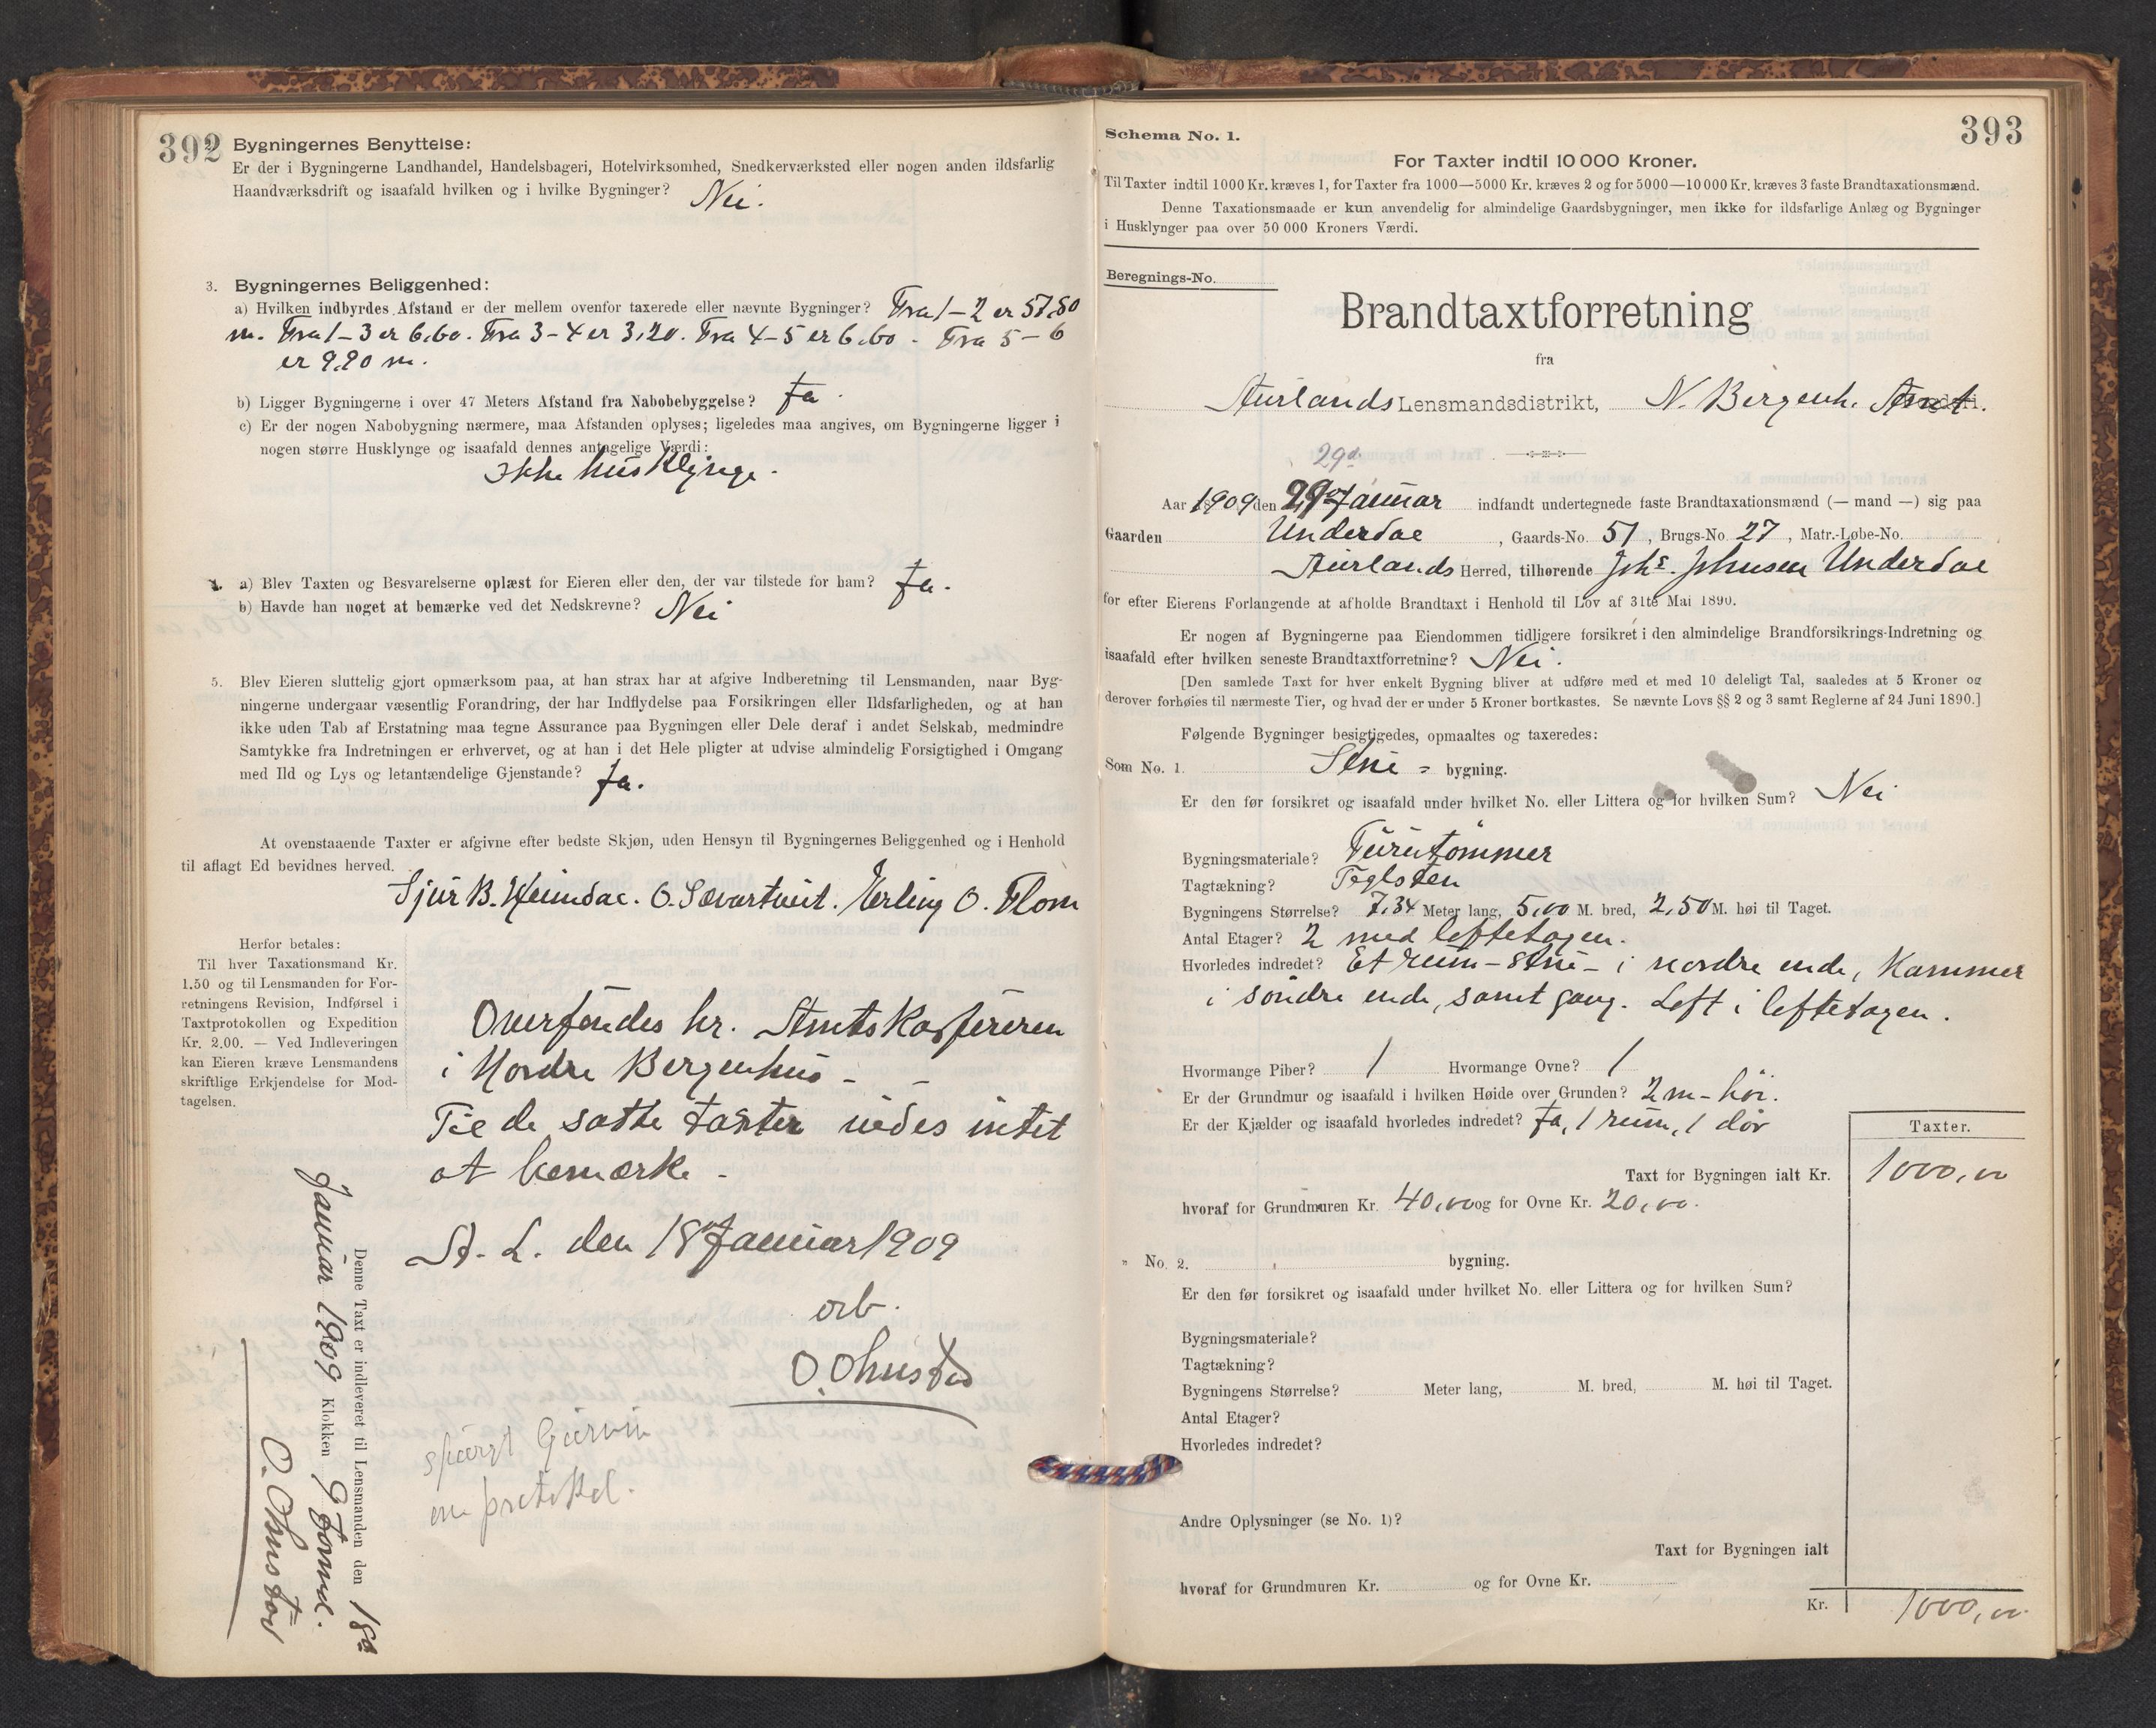 392
Bygningernes Benyttelse:
Er der i Bygningerne Landhandel, Handelsbageri, Hotelvirksomhed, Snedkerværksted eller nogen anden ildsfarlig
Haandværksdrift og isaafald hvilken og i hvilke Bygninger? Nei.
3. Bygningernes Beliggenhed:
a) Hvilken indbyrdes Afstand er der mellem ovenfor taxerede eller nævnte Bygninger? Fra 1-2 er 57,80
m. Fra 1-3 er 6,60. Fra 3-4 er 3,20. Fra 4-5 er 6,60 - Fra 5-6
er 9,90 m.
b) Ligger Bygningerne i over 47 Meters Afstand fra Nabobebyggelse? Ja.
c) Er der nogen Nabobygning nærmere, maa Afstanden oplyses; ligeledes maa angives, om Bygningerne ligger i
nogen større Husklynge og isaafald dennes antagelige Værdi:
Ikke husklynge.
4. a) Blev Taxten og Besvarelserne oplæst for Eieren eller den, der var tilstede for ham? Ja.
b) Havde han noget at bemærke ved det Nedskrevne? Nei
5. Blev Eieren sluttelig gjort opmærksom paa, at han strax har at afgive Indberetning til Lensmanden, naar Byg-
ningerne undergaar væsentlig Forandring, der har Indflydelse paa Forsikringen eller Ildsfarligheden, og at han
ikke uden Tab af Erstatning maa tegne Assurance paa Bygningen eller Dele deraf i andet Selskab, medmindre
Samtykke fra Indretningen er erhvervet, og at han i det Hele pligter at udvise almindelig Forsigtighed i Omgang
med Ild og Lys og letantændelige Gjenstande? Ja.
At ovenstaaende Taxter er afgivne efter bedste Skjøn, uden Hensyn til Bygningernes Beliggenhed og i Henhold
til aflagt Ed bevidnes herved.
Sjur B. Heimdal. O. Erling O. Flom
Herfor betales:
Til hver Taxationsmand Kr.
1.50 og til Lensmanden for For-
retningens Revision, Indførsel i
Taxtprotokollen og Expedition
Kr. 2.00. — Ved Indleveringen
kan Eieren kræve Lensmandens
skriftlige Erkjendelse for Mod-
tagelsen.
Oversendes hr. Amtskassereren
i Nordre Bergenhus -
Til de satte taxter vides intet
at bemærke -
A. L. den 18 Januar 1909
erb.
O. Ohnstad
Denne Taxt er indleveret til Lensmanden den 18de
Januar 1909 Klokken 9 Formd.
O. Ohnstad
spurgt
om protokol.
393
Schema No. 1.
For Taxter indtil 10 000 Kroner.
Til Taxter indtil 1000 Kr. kræves 1, for Taxter fra 1000—5000 Kr. kræves 2 og for 5000—10 000 Kr. kræves 3 faste Brandtaxationsmænd.
Denne Taxationsmaade er kun anvendelig for almindelige Gaardsbygninger, men ikke for ildsfarlige Anlæg og Bygninger
i Husklynger paa over 50 000 Kroners Værdi.
Beregnings-No.
Brandtaxtforretning
fra
Aurlands Lensmandsdistrikt, N. Bergenh. Amt.
29d.
Aar 1909 den 29de Januar indfandt undertegnede faste Brandtaxationsmænd (— mand —) sig paa
Gaarden Underdal, Gaards-No. 51, Brugs-No. 27, Matr.-Løbe-No.
Aurlands Herred, tilhørende Johs. Johnsen Underdal
for efter Eierens Forlangende at afholde Brandtaxt i Henhold til Lov af 31te Mai 1890.
Er nogen af Bygningerne paa Eiendommen tidligere forsikret i den almindelige Brandforsikrings-Indretning og
isaafald efter hvilken seneste Brandtaxtforretning? Nei.
[Den samlede Taxt for hver enkelt Bygning bliver at udføre med et med 10 deleligt Tal, saaledes at 5 Kroner og
derover forhøies til nærmeste Tier, og hvad der er under 5 Kroner bortkastes. Se nævnte Lovs §§ 2 og 3 samt Reglerne af 24 Juni 1890.]
Følgende Bygninger besigtigedes, opmaaltes og taxeredes:
Som No. 1. Stue- bygning.
Er den før forsikret og isaafald under hvilket No. eller Littera og for hvilken Sum? Nei
Bygningsmateriale? Furutømmer
Tagtækning? Teglsten
Bygningens Størrelse? 7,34 Meter lang, 5,00 M. bred, 2,50 M. høi til Taget.
Antal Etager? 2 med loftetagen.
Hvorledes indredet? Et rum - stue - i nordre ende, Kammer
i søndre ende, samt gang. Loft i loftetagen.
Hvormange Piber? 1 Hvormange Ovne? 1
Er der Grundmur og isaafald i hvilken Høide over Grunden? 2 m - høi.
Er der Kjælder og isaafald hvorledes indredet? Ja, 1 rum, 1 dør
Taxter.
Taxt for Bygningen ialt Kr. 1000,00
hvoraf for Grundmuren Kr. 40,00 og for Ovne Kr. 20,00.
" No. 2. bygning.
Er den før forsikret og isaafald under hvilket No. eller Littera og for hvilken Sum?
Bygningsmateriale?
Tagtækning?
Bygningens Størrelse? Meter lang, M. bred, M. høi til Taget.
Antal Etager?
Hvorledes indredet?
Andre Oplysninger (se No. 1)?
Taxt for Bygningen ialt
hvoraf for Grundmuren Kr. og for Ovne Kr.
Kr. 1000,00